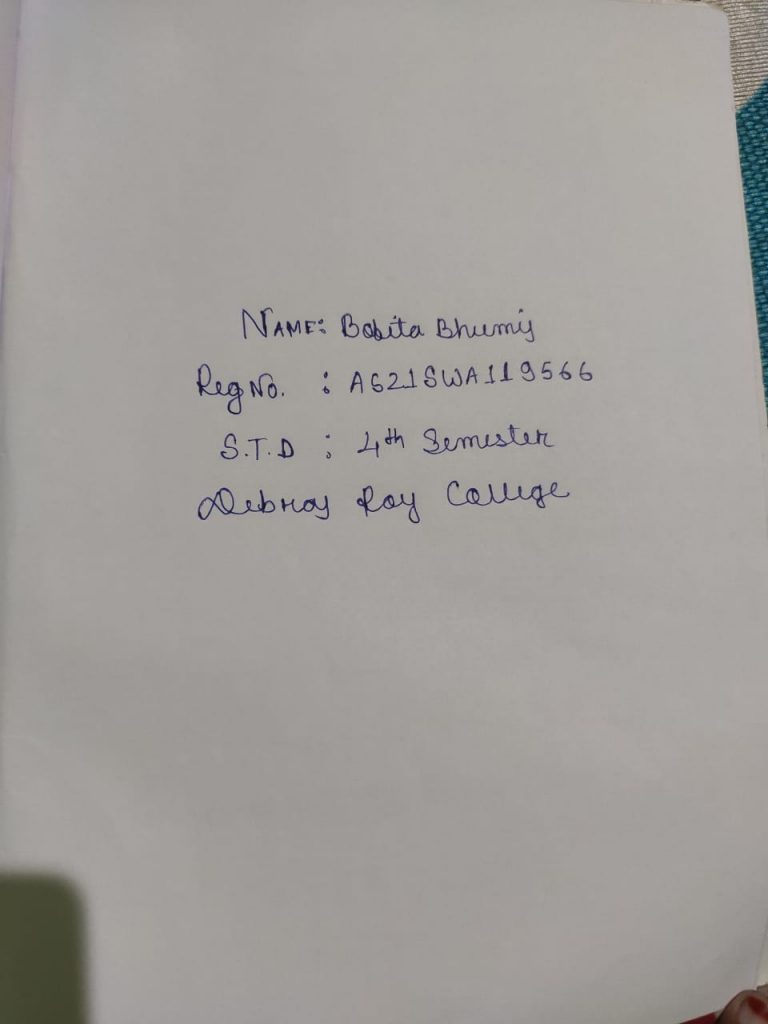 NAME: Bobita Bhumij
Reg No. : AS21SWA119566
S.T.D : 4th Semester
Debraj Roy College